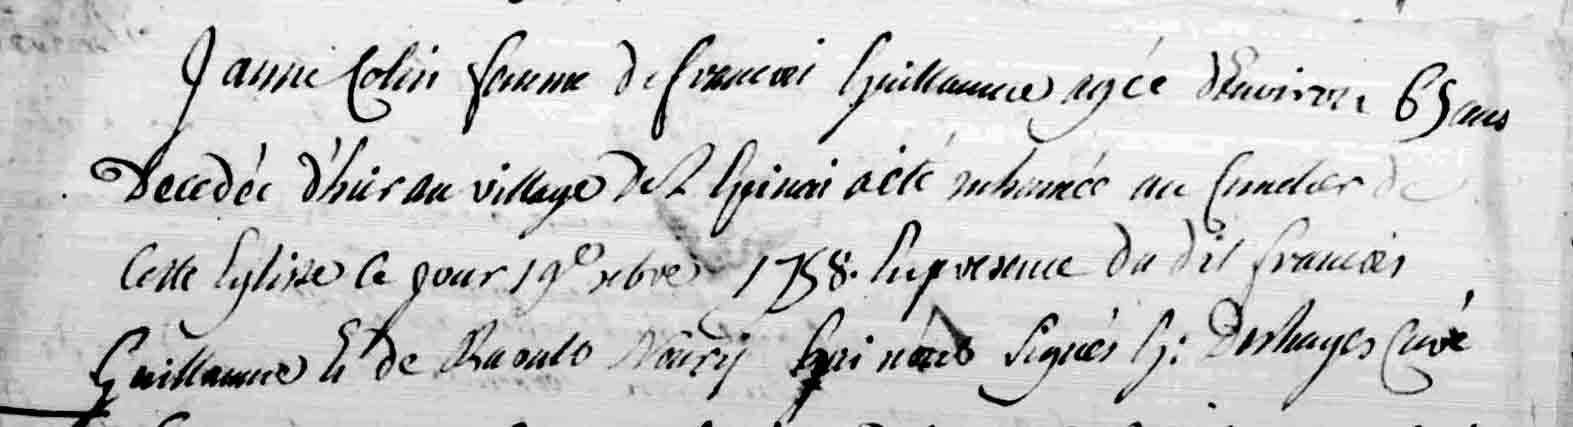 Janne Colin femme de francois Guillaume agée d'environ 65 ans
Decedée d'hier au village de L'Epinai a été inhumée au Cimetier de
Cette Eglise Ce jour 19e 1758. En presence du dit francois
Guillaume Et de Raoult Noury qui Signés G: Deshayes Curé